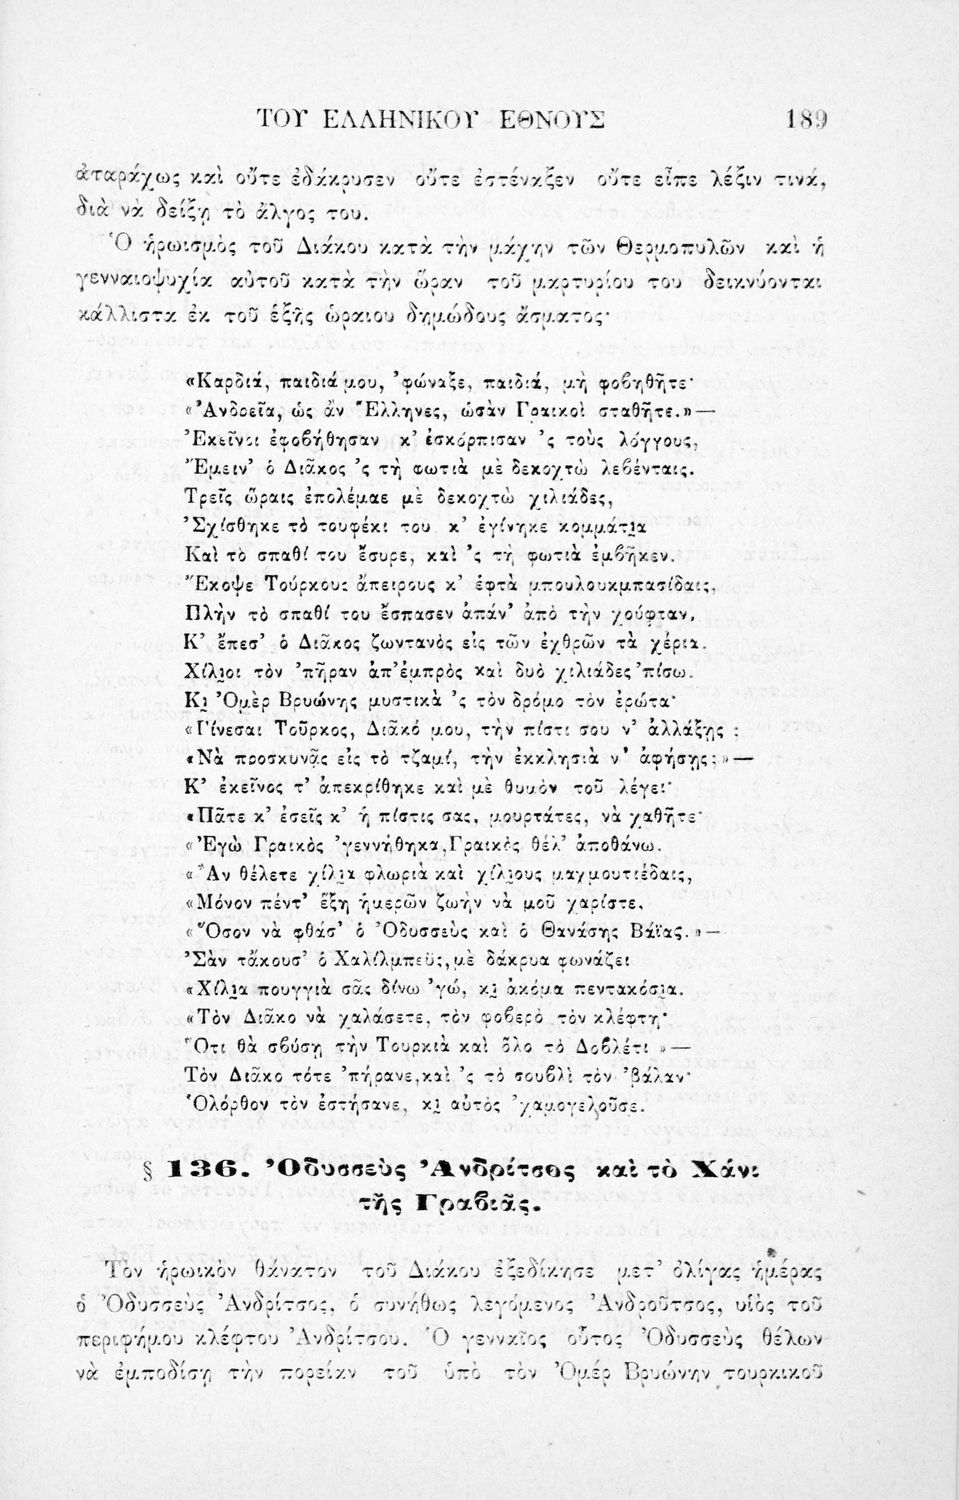 ΤΟΥ ΕΛΛΗΝΙΚΟΥ ΕΘΝΟΥΣ 189
ἀταράχως καὶ οὔτε ἐδάκρυσεν οὔτε ἐστέναξεν οὔτε εἶπε λέξιν τινά,
διὰ νὰ δείξῃ τὸ ἄλγος του.
Ὁ ἡρωισμὸς τοῦ Διάκου κατὰ τὴν μάχην τῶν Θερμοπυλῶν καὶ ἡ
γενναιοψυχία αὐτοῦ κατὰ τὴν ὥραν τοῦ μαρτυρίου του δεικνύονται
κάλλιστα ἐκ τοῦ ἑξῆς ὡραιου δημώδους ἄσματος·
«Καρδιά, παιδιά μου, ᾿φώναξε, παιδιά, μὴ φοβηθῆτε·
«Ἀνδρεῖα, ὡς ἂν Ἕλληνες, ὡσὰν Γραικοὶ σταθῆτε.»—
Ἐκεῖνοι ἐφοβήθησαν κ᾿ ἐσκόρπισαν ᾿ς τοὺς λόγγους,
Ἔμειν᾿ ὁ Διᾶκος ᾿ς τὴ φωτιὰ μὲ δεκοχτὼ λεβένταις.
Τρεῖς ὥραις ἐπολέμαε μὲ δεκοχτὼ χιλιάδες,
Ἐσχίσθηκε τὸ τουφέκι του κ᾿ ἐγίνηκε κομμάτια
Καὶ τὸ σπαθί του ἔσυρε, καὶ ᾿ς τὴ φωτιὰ ἐμβῆκεν.
Ἔκοψε Τούρκους ἄπειρους κ᾿ ἑφτὰ μπουλουκμπασίδαις,
Πλὴν τὸ σπαθί του ἔσπασεν ἀπάν᾿ ἀπὸ τὴν χούφταν,
Κ᾿ ἔπεσ᾿ ὁ Διᾶκος ζωντανὸς εἰς τῶν ἐχθρῶν τὰ χέρια.
Χίλιοι τὸν ᾿πῆραν ἀπ᾿ἐμπρὸς καὶ δυὸ χιλιάδες ᾿πίσω.
Κι Ὀμὲρ Βρυώνης μυστικὰ ᾿ς τὸν δρόμο τὸν ἐρώτα·
«Γίνεσαι Τοῦρκος, Διᾶκό μου, τὴν πίστι σου ν᾿ ἀλλάξῃς ;
«Νὰ προσκυνᾷς εἰς τὸ τζαμί, τὴν ἐκκλησιὰ ν᾿ ἀφήσῃς;»—
Κ᾿ ἐκεῖνος τ᾿ ἀπεκρίθηκε καὶ μὲ θυμὸν τοῦ λέγει·
«Πᾶτε κ᾿ ἐσεῖς κ᾿ ἡ πίστις σας, μουρτάτες, νὰ χαθῆτε·
«Ἐγὼ Γραικὸς ᾿γεννήθηκα,Γραικὸς θέλ᾿ ἀποθάνω.
«Ἂν θέλετε χίλια φλωριὰ καὶ χίλιους μαχμουτιέδαις,
«Μόνον πέντ᾿ ἕξη ἡμερῶν ζωὴν νὰ μοῦ χαρίστε,
«Ὅσον νὰ φθάσ᾿ ὁ Ὀδυσσεὺς καὶ ὁ Θανάσης Βάϊας.»—
Σὰν τἄκουσ᾿ ὁ Χαλίλμπεϋς,μὲ δάκρυα φωνάζει
«Χίλια πουγγιὰ σᾶς δίνω ᾿γώ, κι ἀκόμα πεντακόσια.
«Τὸν Διᾶκο νὰ χαλάσετε, τὸν φοβερὸ τὸν κλέφτη·
Ὅτι θὰ σβύσῃ τὴν Τουρκιὰ καὶ ὅλο τὸ Δοβλέτι »—
Τὸν Διᾶκο τότε ᾿πήρανε,καὶ ᾿ς τὸ σουβλὶ τὸν ᾿βάλαν·
Ὁλόρθον τὸν ἐστήσανε, κι αὐτὸς ᾿χαμογελοῦσε.
§ 136. Ὀδυσσεὺς Ἀνδρίτσος καὶ τὸ Χάνι
τῆς Γραβιᾶς.
Τὸν ἡρωικὸν θάνατον τοῦ Διάκου ἐξεδίκησε μετ᾿ ὀλίγας ἡμέρας
ὁ Ὀδυσσεὺς Ἀνδρίτσος, ὁ συνήθως λεγόμενος Ἀνδροῦτσος, υἱὸς τοῦ
περιφήμου κλέφτου Ἀνδρίτσου. Ὁ γενναῖος οὗτος Ὀδυσσεὺς θέλων
νὰ ἐμποδίσῃ τὴν πορείαν τοῦ ὑπὸ τὸν Ὀμέρ Βρυώνην τουρκικοῦ